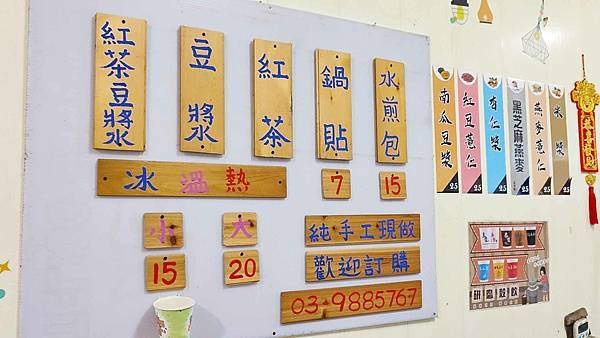 紅茶豆漿
豆漿
紅茶
鍋貼
水煎包
冰溫熱
7
15
小
大
15
20
純手工現做
歡迎訂購
03-9885767
南瓜豆漿
25
紅豆薏仁
25
杏仁漿
25
黑芝麻燕麥
燕麥薏仁
25
米漿
25
研磨穀飲